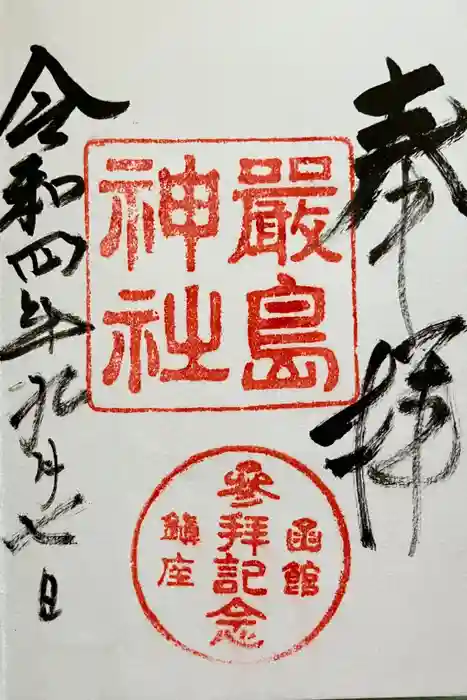 奉拝
嚴島
神社
函館
参拝記念
鎮座
令和四年九月七日